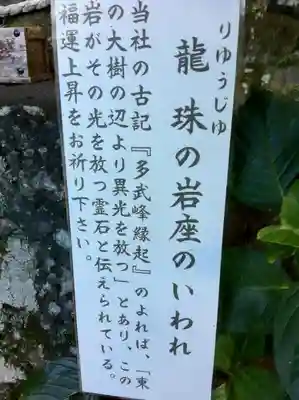 りゆうじゆ
龍珠の岩座のいわれ
当社の古記『多武峰縁起』のよれば、「東
の大樹の辺より異光を放つ」とあり、この
岩がその光を放つ霊石と伝えられている。
福運上昇をお祈り下さい。